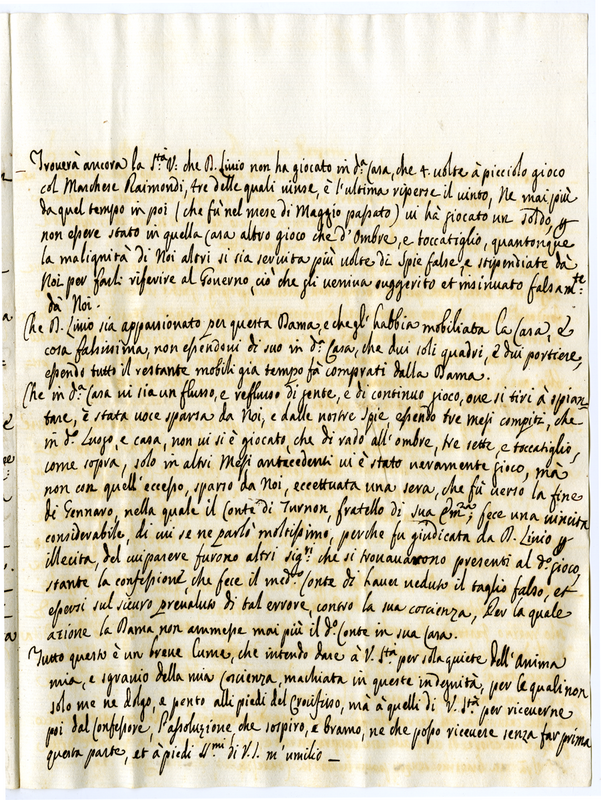 Trouerà ancora la S.tà V.a che D. Liuio non ha giocato in d.a Casa, che 4. uolte à picciolo gioco
col Marchese Raimondi, tre delle quali uinse, è l'ultima riperse il uinto, Ne mai più
da quel tempo in poi (che fù nel mese di Maggio passato) ui hà giocato un soldo, p
non essere stato in quella Casa altro gioco che d'Ombre, e toccatiglio, quantonque
la malignità di Noi altri si sia seruita più uolte di Spie false, e stipendiate dà
Noi per farli riferire al Gouerno, ciò che gli ueniua suggerito et insinuato falsam.te
dà Noi.
Che D. Liuio sia appassionato per questa Dama, e che gl'habbia mobiliata la Casa, è
cosa falsissima, non essendoui di suo in d.a Casa, che dui soli quadri, è dui portiere,
essendo tutto il restante mobili già tempo fà comprati dalla Dama.
Che in d.a Casa ui sia un flusso, e reflusso di gente, e di continuo gioco, oue si tiri à
è stata uoce sparsa da Noi, e dalle nostre Spie, essendo tre mesi compiti, che
in d.o Luogo, e casa, non ui si è giocato, che di rado all'ombre, tre sette, e toccatiglio,
come sopra, solo in altri Mesi antecedenti ui è stato ueramente gioco, mà
non con quell'eccesso, sparso da Noi, eccettuata una sera, che fù uerso la fine
di Gennaro, nella quale il Conte di Turnon, fratello di sua Em.za; fece una uincita
considerabile, di cui se ne parlò moltissimo, perche fu giudicata da D. Liuio p
illecita, del cui parere furono altri sig.ri che si trouauano presenti al d.o gioco,
stante la confessione, che fece il med.mo Conte di hauer ueduto il taglio falso, et
essersi sul sicuro preualuto di tal errore, contro la sua coscienza, Per la quale
azione la Dama non ammesse mai più il d.o Conte in sua Casa.
Tutto questo è un breue lume, che intendo dare à V. S.tà per sola quiete dell'anima
mia, e sgrauio della mia coscienza, machiata in queste indegnità, per le quali non
solo me ne dolgo, e pento alli piedi del Crocifisso, mà à quelli di V. S.tà per riceuerne
poi dal Confessore, l'assoluzione, che sospiro, e bramo, ne che posso riceuere senza far prima
questa parte, et à piedi SS.mi di V.S. m'umilio —